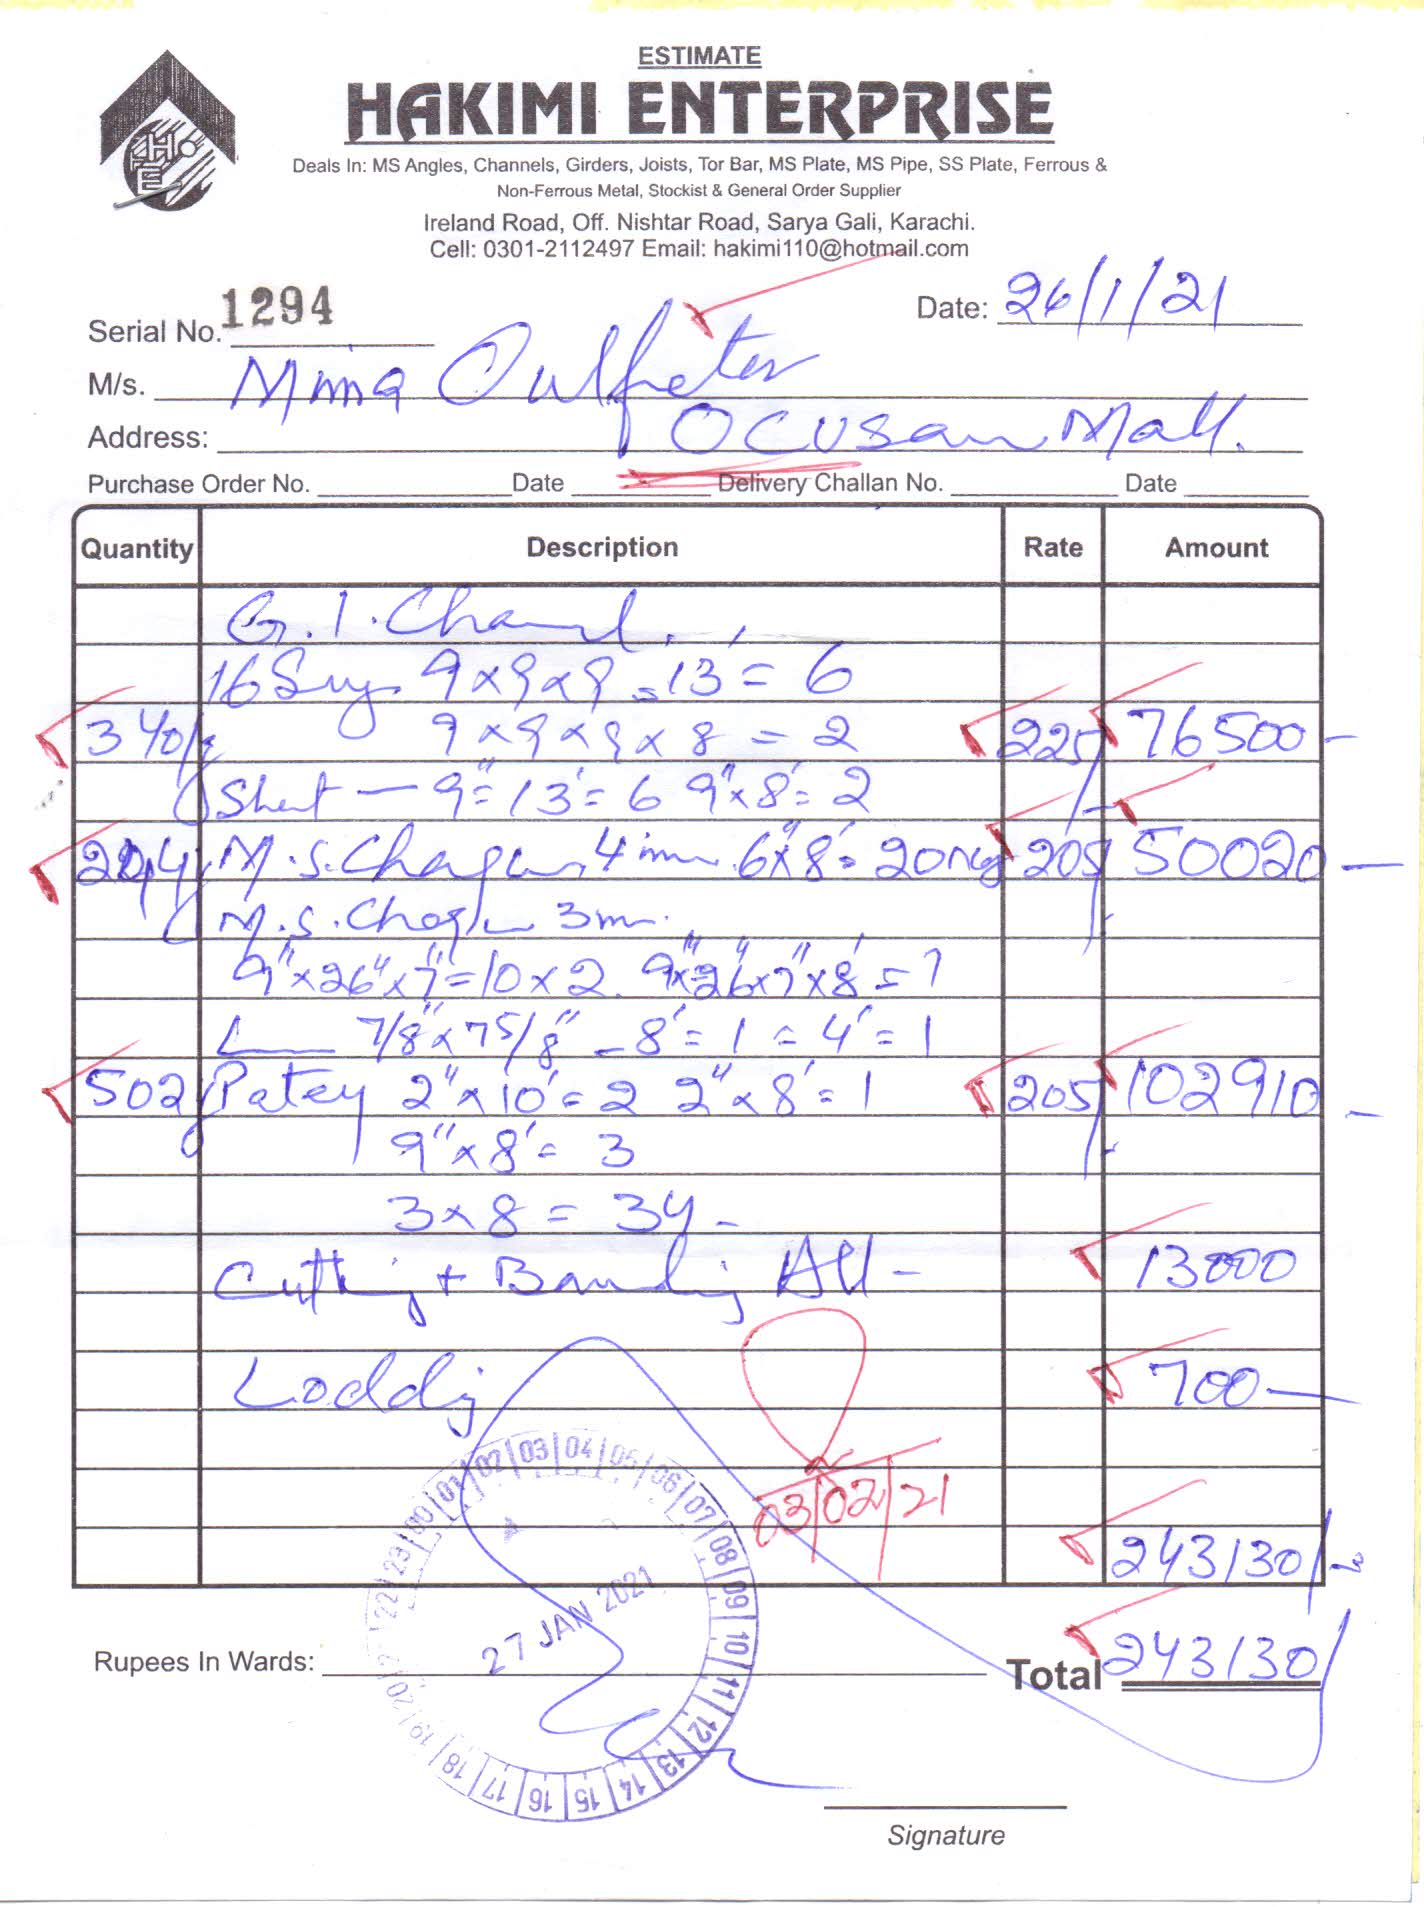 ESTIMATE
HAKIMI ENTERPRISE
HFE
Deals In: MS Angles, Channels, Girders, Joists, Tor Bar, MS Plate, MS Pipe, SS Plate, Ferrous &
Non-Ferrous Metal, Stockist & General Order Supplier
Ireland Road, Off. Nishtar Road, Sarya Gali, Karachi.
Cell: 0301-2112497 Email: hakimi110@hotmail.com
Serial No. 1294 Date: 26/1/21
M/s.
Address: Mall.
Purchase Order No. Date Delivery Challan No. Date
Quantity Description Rate Amount
G.I.
16 9x9x9 = 13' = 6
340 9x9x9x8 = 2 225/- 76500-
9"= 13'= 6 9"x8'= 2
244 M.S. 4 6"x8'= 20 205/- 50020-
M.S. 3m
9"x26"x7"=10x2. 9"x26"x7"x8'=1
L 7/8"x75/8" - 8'=1 = 4'=1
502 Patey 2"x10'=2 2"x8'=1 205/- 102910-
9"x8'= 3
3x8 = 34-
Cutting + Banding All - 13000
Lodding 700-
03/02/21
243130/-
00 01 02 03 04 05 06 07 08 09 10 11 12 13 14 15 16 17 18 19 20 21 22 23
27 JAN 2021
Rupees In Wards: Total 243130/
Signature